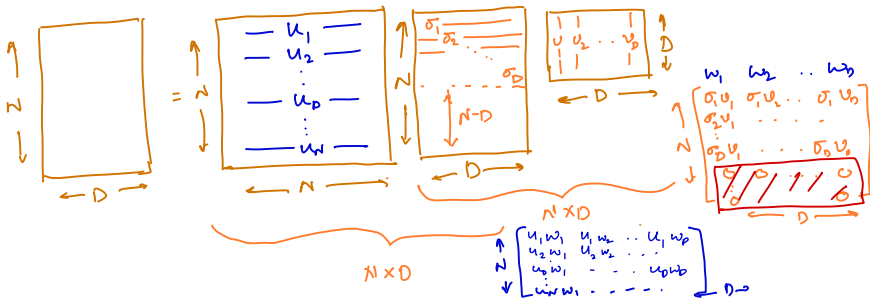 N
D
=
N
u₁
u₂
⋮
u_D
⋮
u_N
N
N
σ₁
σ₂
⋱
σ_D
N-D
D
v v₂ .. v_D
D
D
w₁ w₂ .. w_D
N
σ₁v₁ σ₁v₂ .. σ₁v_D
σ₂v₁ . . . .
⋮
σ_Dv₁ . . . σ_Dv_D
0 0 ... 0
⋮ 0 0
D
N×D
N×D
N
u₁w₁ u₁w₂ .. u₁w_D
u₂w₁ u₂w₂ ...
⋮
u_Dw₁ - - - u_Dw_D
u_Nw₁ - - - - -
D